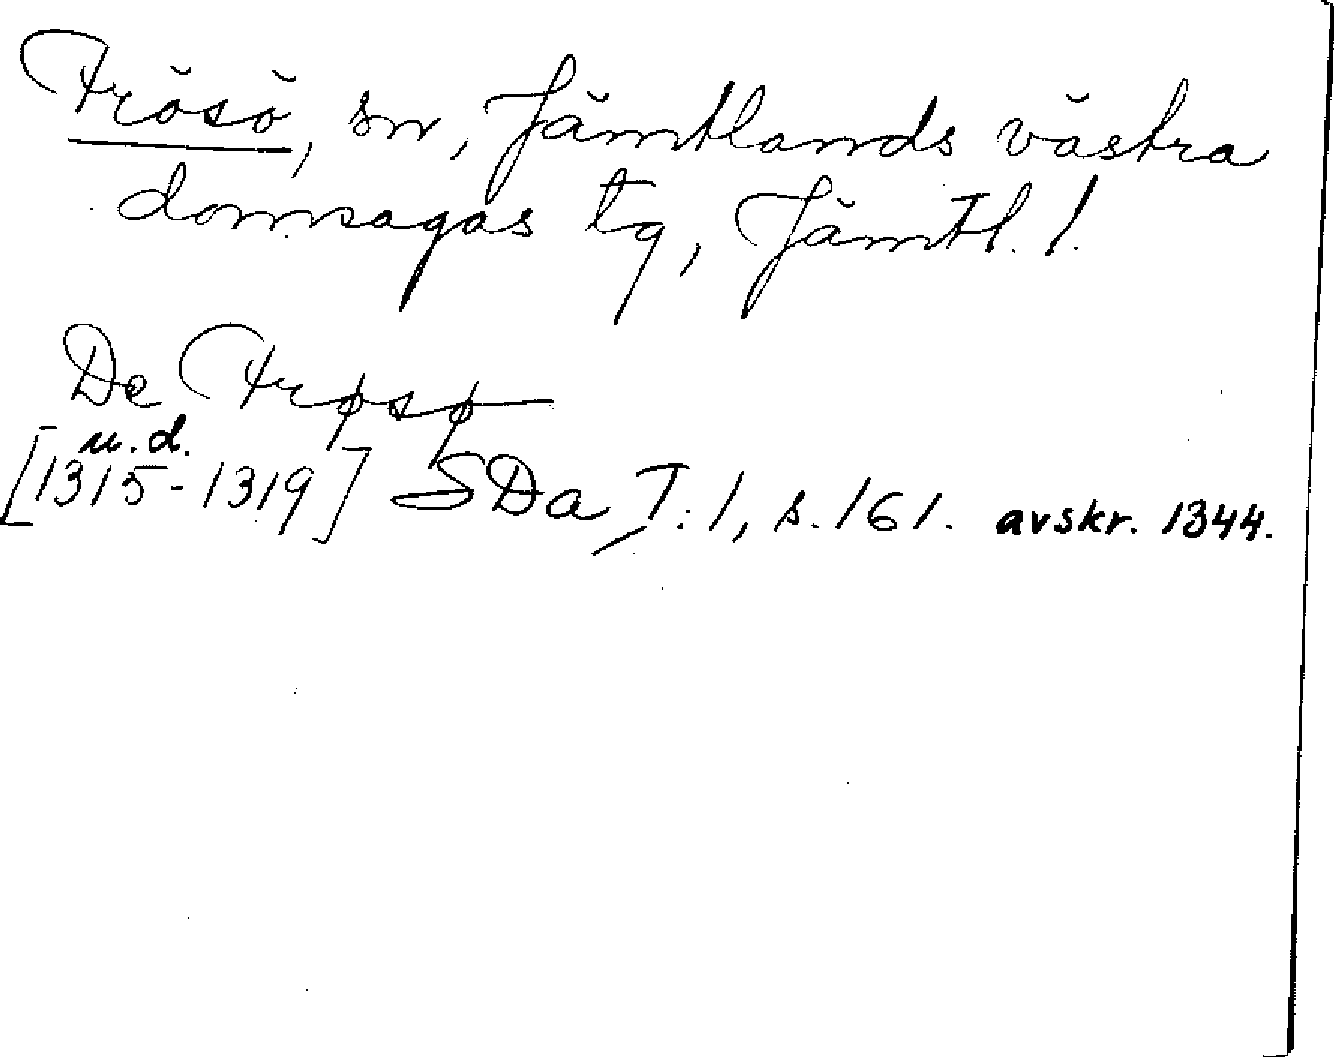 Frösö, sn, Jämtlands västra
domsagas tg, Jämtl. l.
De Frøsø
u.d.
[1315-1319] SDa T. 1, s. 161. avskr. 1344.